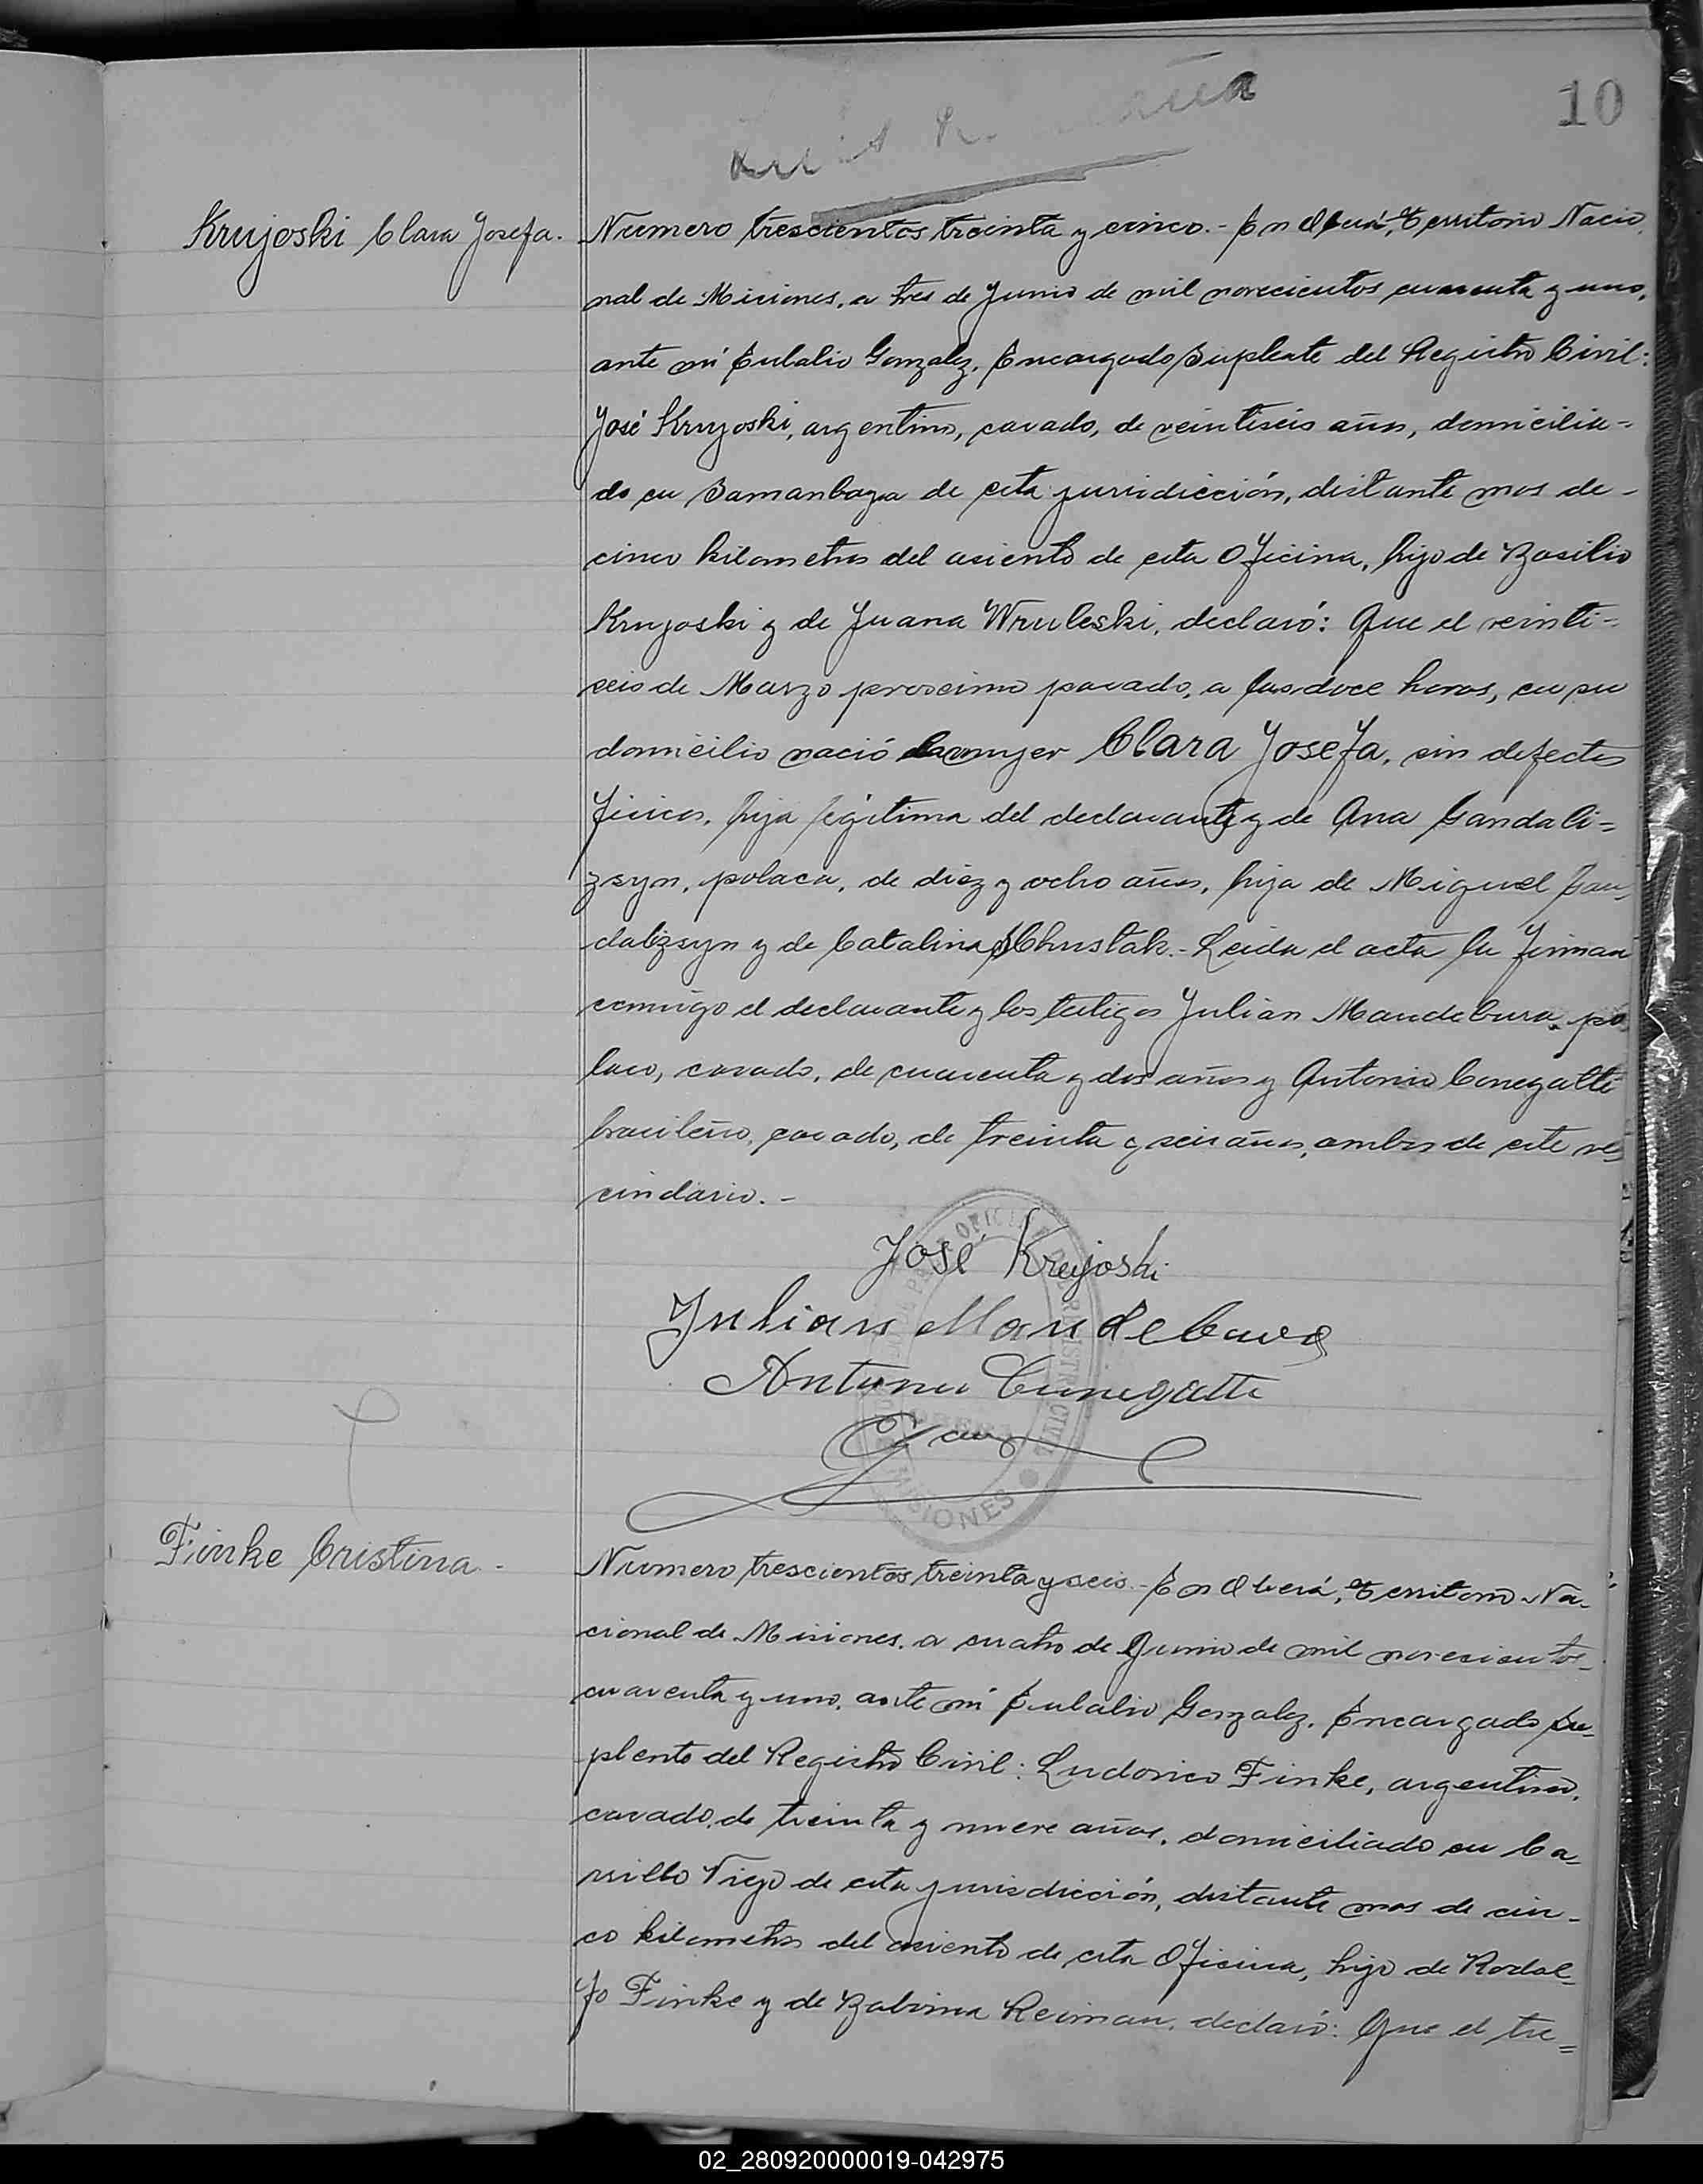 10
Krujoski Clara Josefa.
Numero trescientos treinta y cinco.- En Oberá, Territorio Nacio
nal de Misiones, a tres de Junio de mil novecientos cuarenta y uno,
ante mi Eulalio Gonzalez, Encargado Suplente del Registro Civil:
José Krujoski, argentino, casado, de veintiseis años, domicilia=
do en Samanbaya de esta jurisdicción, distante mas de-
cinco kilometros del asiento de esta Oficina, hijo de Basilio
Krujoski y de Juana Wruleski, declaró: Que el veinti=
seis de Marzo proximo pasado, a las doce horas, en su
domicilio nació la mujer Clara Josefa, sin defectos
fisicos, hija legitima del declarante y de Ana Gandali=
zsyn, polaca, de diez y ocho años, hija de Miguel Gan_
dalizsyn y de Catalina Chrustak.- Leida el acta la firman
conmigo el declarante y los testigos Julian Mandebura, po
laco, casado, de cuarenta y dos años y Antonio Conegatti
brasileño, casado, de treinta y seis años, ambos de este ve_
cindario.-
José Krujoski
Julian Mandebura
Antonio Cunegatti
MISIONES
Finke Cristina-
Numero trescientos treinta y seis.- En Oberá, Territorio Na_
cional de Misiones, a cuatro de Junio de mil novecientos_
cuarenta y uno, ante mi Eulalio Gonzalez, Encargado Su_
plente del Registro Civil: Ludovico Finke, argentino,
casado, de treinta y nueve años, domiciliado en Ca_
rillo Viejo de esta jurisdicción, distante mas de cin_
co kilometros del asiento de esta Oficina, hijo de Rodol_
fo Finke y de Zabina Reiman, declaró: Que el tre=
02_280920000019-042975